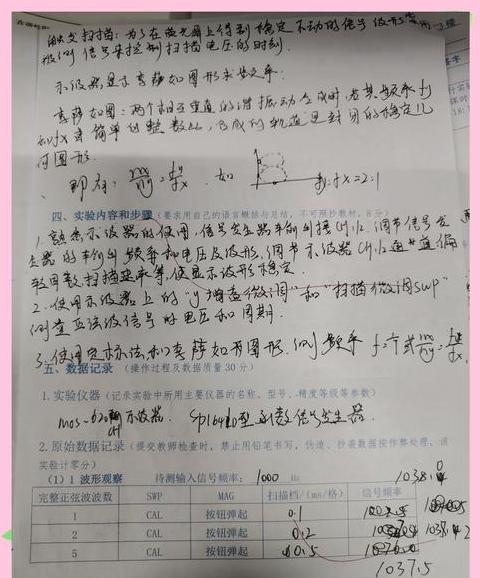 触发扫描：为了在荧光屏上得到稳定不动的信号波形，采用被
测信号来控制扫描电压的时刻.
示波器显示李萨如图形求频率：
李萨如图：两个相互垂直的谐振动合成时，若其频率fy
和fx成简单的整数比，合成的轨迹是封闭的稳定几
何图形.
即有：nx/ny=fy/fx . 如 fy:fx=2:1
四、实验内容和步骤（要求用自己的语言概括与总结，不可照抄教材，8分）
1.熟悉示波器的使用.信号发生器车输出接CH1.调节信号发
生器的输出频率和电压及波形.调节示波器CH1通道偏
转因数扫描速率等，使显示波形稳定.
2.使用示波器上的“y增益微调”和“扫描微调SWP”
测量正弦波信号的电压和周期.
3.使用定标法和李萨如图形.测频率
五、数据记录（操作过程及数据质量30分）
1.实验仪器（记录实验中所用主要仪器的名称、型号、精度等级等参数）
示波器. 函数信号发生器.
2.原始数据记录（提交教师检查时，禁止用铅笔书写，伪造、抄袭数据按作弊处理，该
实验计零分）
（1）1 波形观察 待测输入信号频率： 1000 Hz
完整正弦波波数 SWP MAG 扫描档/(ms/格) 信号频率
1 CAL 按钮弹起 0.1
2 CAL 按钮弹起 0.2
5 CAL 按钮弹起 0.5
1037.5